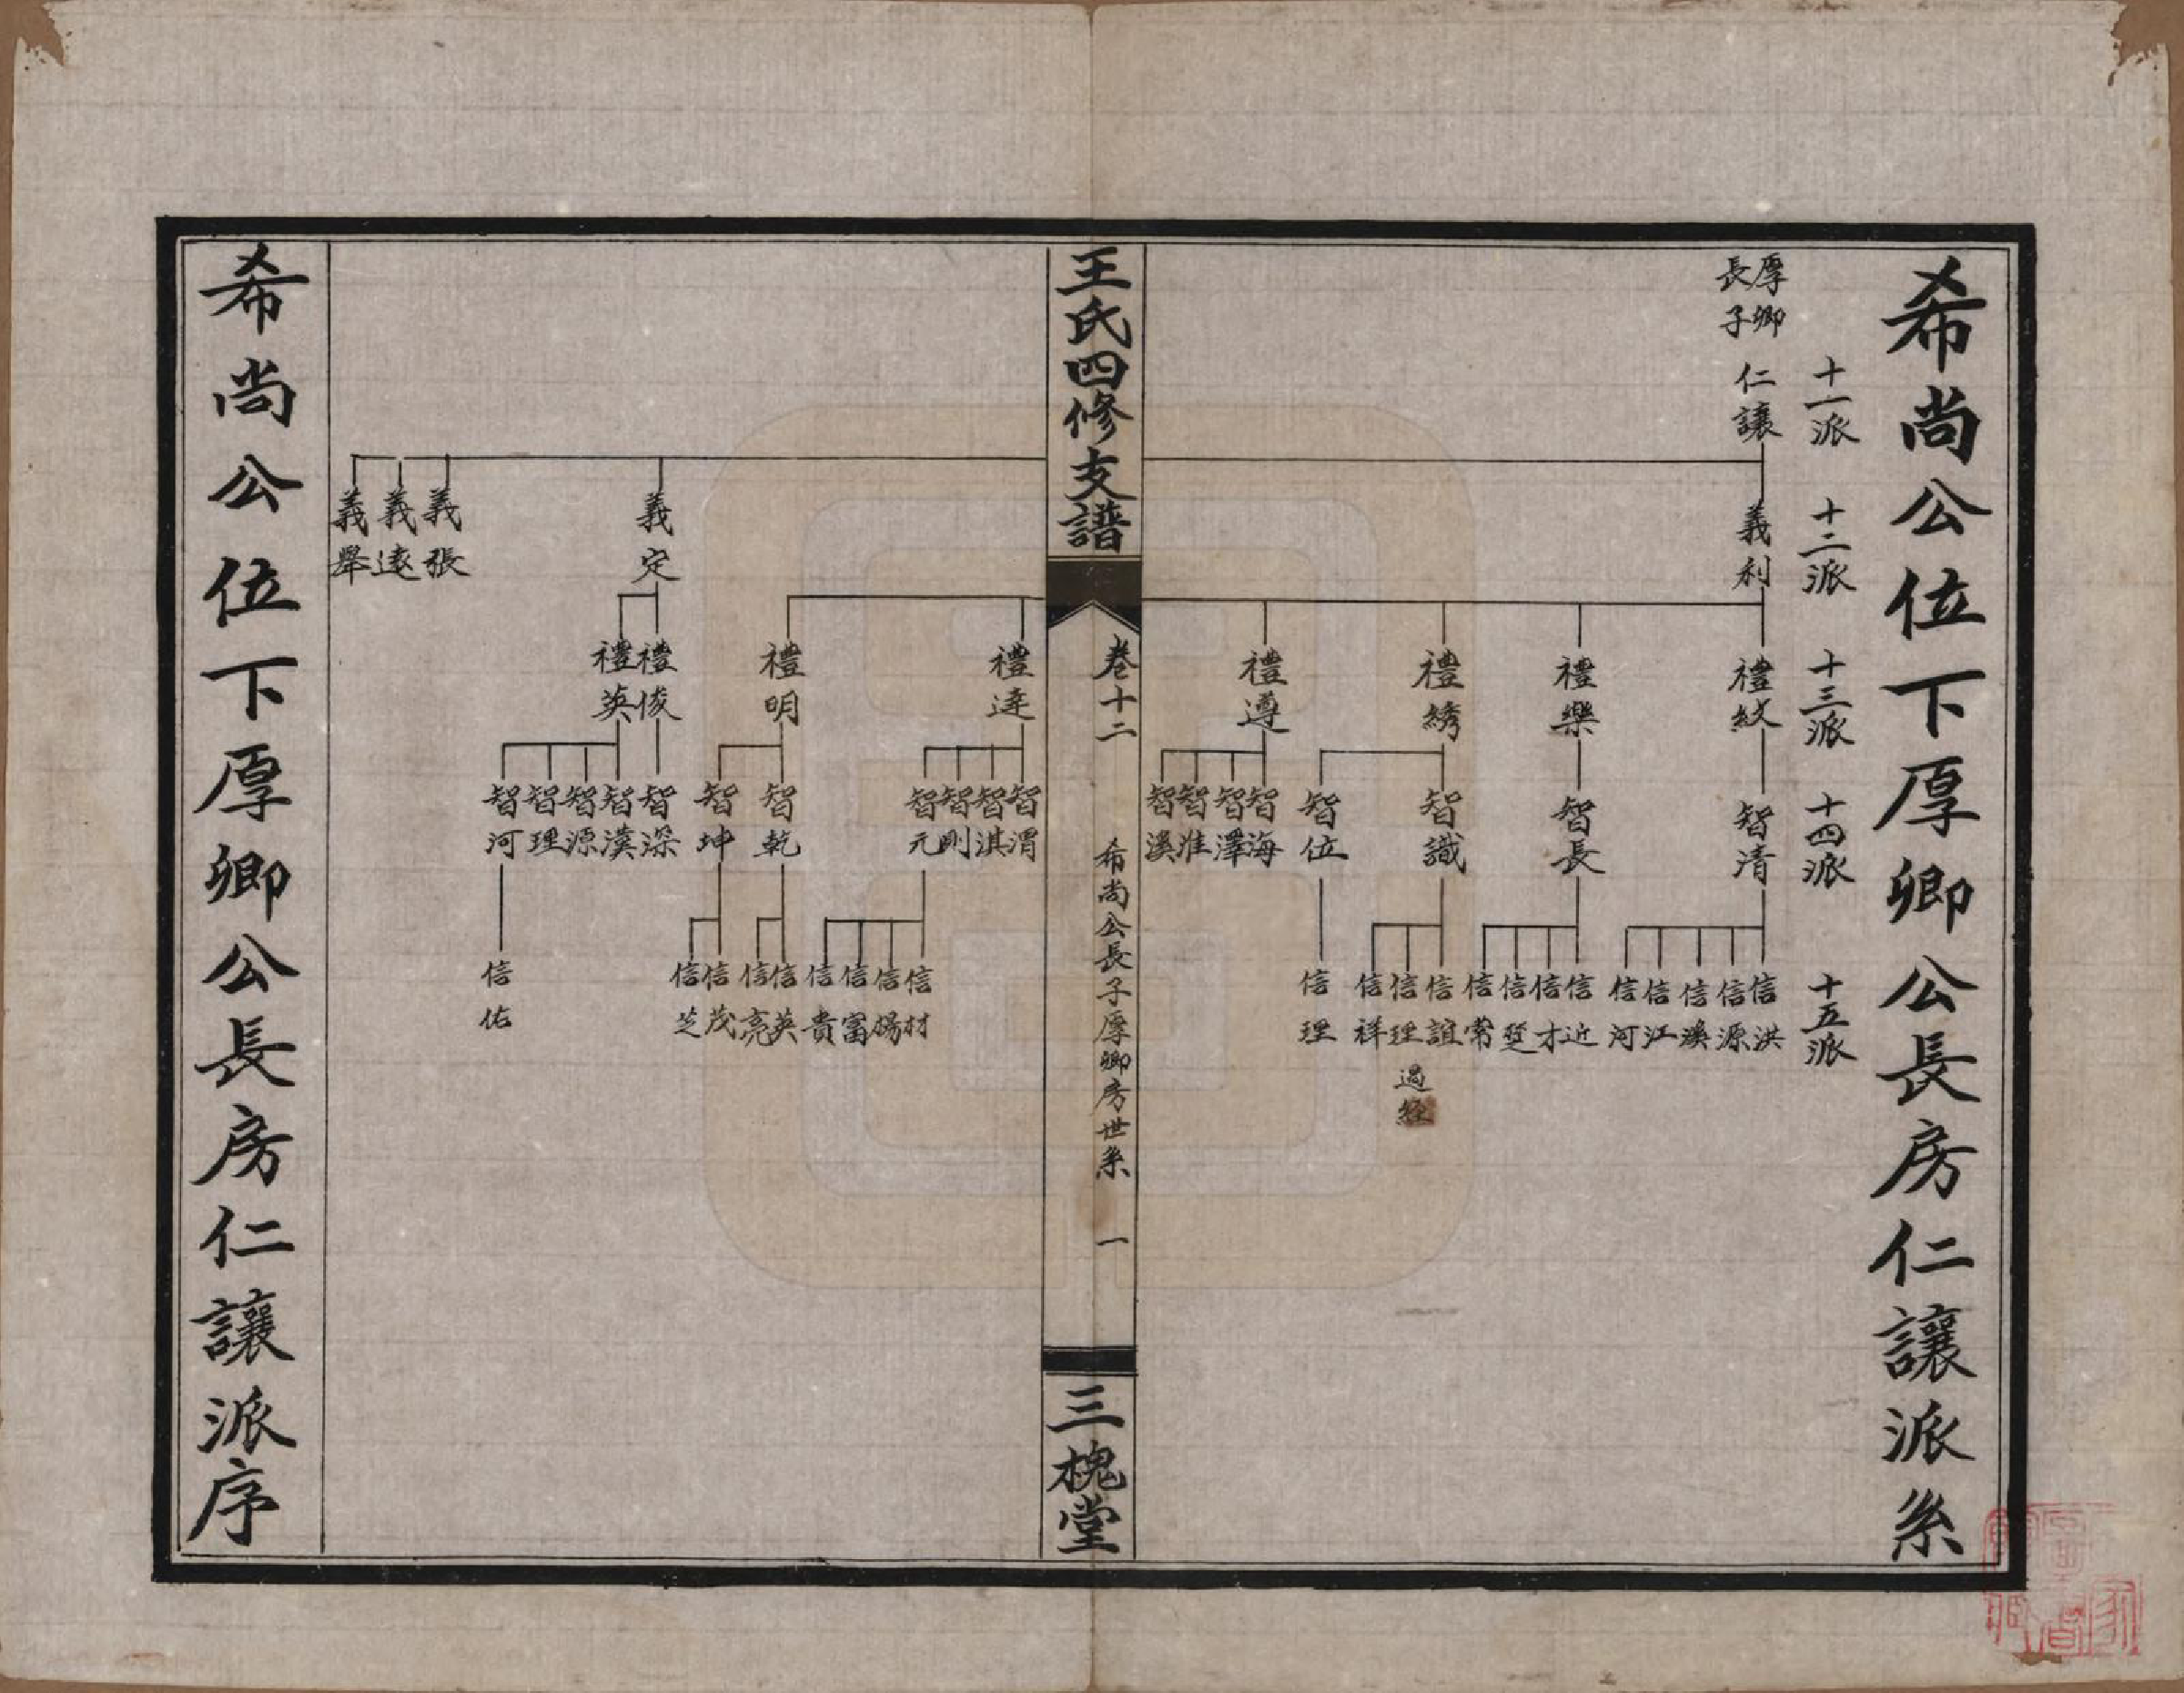 希尚公位下厚卿公長房仁讓派系
十一派
十二派
十三派
十四派
十五派
厚卿
長子
仁讓
義利
禮紋
禮樂
禮綉
禮遵
智清
智長
智識
智位
智海
智澤
智淮
智溪
信洪
信源
信溪
信江
信河
信近
信才
信楚
信常
信誼
信理
過經
信祥
信理
王氏四修支譜
卷十二
希尚公長子厚卿房世系
一
三槐堂
禮達
禮明
智渭
智淇
智剛
智元
智乾
智坤
信材
信楊
信富
信貴
信英
信亮
信茂
信芝
義定
禮俊
禮英
智深
智漢
智源
智理
智河
信佑
義張
義遠
義舉
希尚公位下厚卿公長房仁讓派序